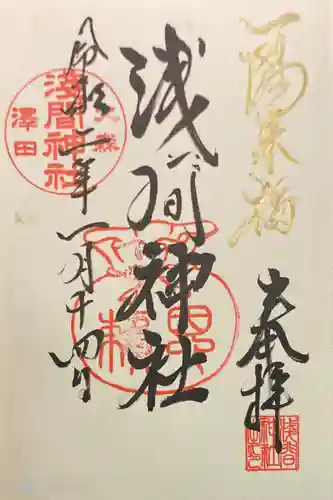 一陽来福
奉拝
浅間神社
令和二年一月十四日
大森
淺間神社
澤田